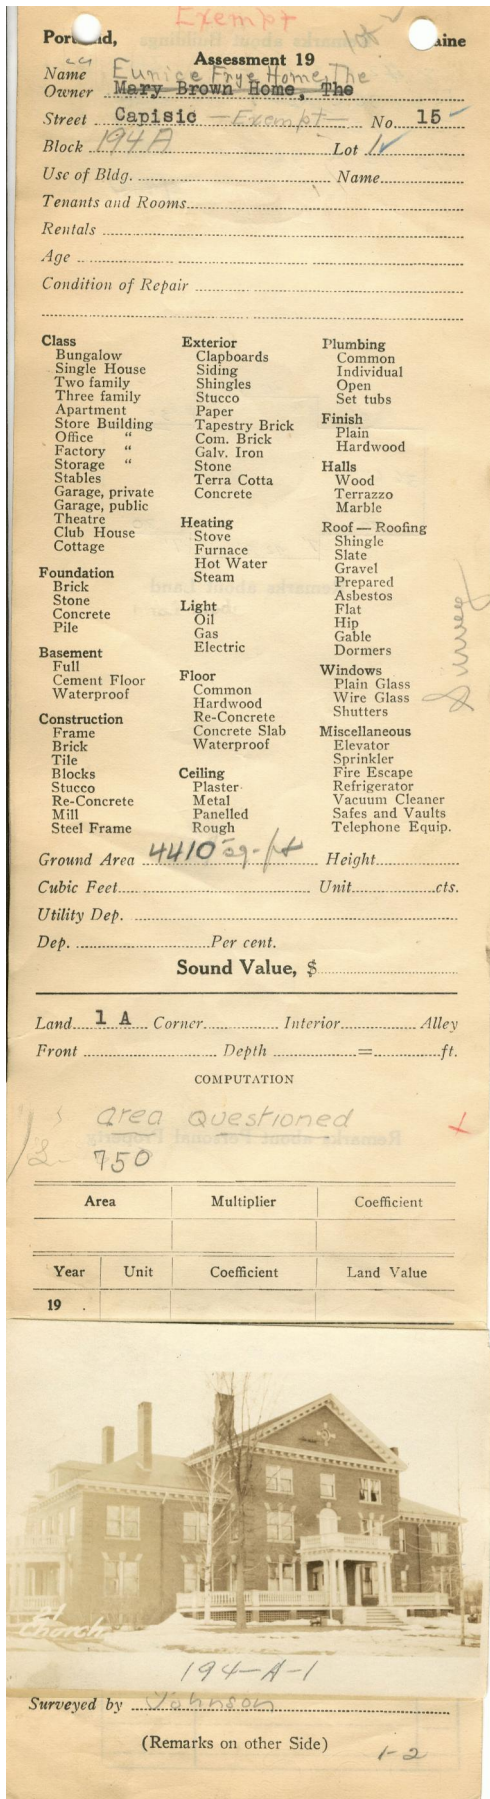 Exempt
Portland, Maine
Assessment 19
Name Eunice Frye Home, The
Owner Mary Brown Home, The
Street Capisic —Exempt— No. 15
Block 194A Lot 1
Use of Bldg. Name
Tenants and Rooms
Rentals
Age
Condition of Repair
Class
Bungalow
Single House
Two family
Three family
Apartment
Store Building
Office "
Factory "
Storage "
Stables
Garage, private
Garage, public
Theatre
Club House
Cottage
Foundation
Brick
Stone
Concrete
Pile
Basement
Full
Cement Floor
Waterproof
Construction
Frame
Brick
Tile
Blocks
Stucco
Re-Concrete
Mill
Steel Frame
Exterior
Clapboards
Siding
Shingles
Stucco
Paper
Tapestry Brick
Com. Brick
Galv. Iron
Stone
Terra Cotta
Concrete
Heating
Stove
Furnace
Hot Water
Steam
Light
Oil
Gas
Electric
Floor
Common
Hardwood
Re-Concrete
Concrete Slab
Waterproof
Ceiling
Plaster
Metal
Panelled
Rough
Plumbing
Common
Individual
Open
Set tubs
Finish
Plain
Hardwood
Halls
Wood
Terrazzo
Marble
Roof — Roofing
Shingle
Slate
Gravel
Prepared
Asbestos
Flat
Hip
Gable
Dormers
Windows
Plain Glass
Wire Glass
Shutters
Miscellaneous
Elevator
Sprinkler
Fire Escape
Refrigerator
Vacuum Cleaner
Safes and Vaults
Telephone Equip.
Ground Area 4410 sq-ft Height
Cubic Feet Unit cts.
Utility Dep.
Dep. Per cent.
Sound Value, $
Land 1 A Corner Interior Alley
Front Depth = ft.
COMPUTATION
area questioned
750
Area Multiplier Coefficient
Year Unit Coefficient Land Value
19 .
21
Church
194-A-1
Surveyed by Johnson
(Remarks on other Side)
1-2